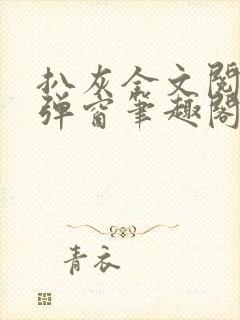 扒灰全文阅
弹窗笔趣阁
青衣